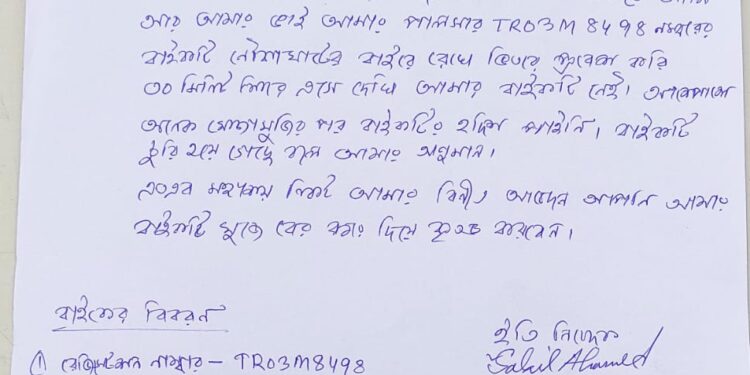 আর আমার ভাই আমার পালসার TR03M 8498 নম্বরের
বাইকটি নৌকাঘাটের বাইরে রেখে ভিতরে প্রবেশ করি
৩০ মিনিট পরে এসে দেখি আমার বাইকটি নেই। আশেপাশে
অনেক খোজাখুজির পর বাইকটির হদিশ পাইনি। বাইকটি
চুরি হয়ে গেছে বলে আমার অনুমান।
অতএব মহাশয়ের নিকট আমার বিনীত আবেদন আপনি আমার
বাইকটি খুজে বের করে দিয়ে কৃতার্থ করবেন।
বাইকের বিবরন
ইতি নিবেদক
Sahil Ahamed
১) রেজিস্টেশন নাম্বার – TR03M8498